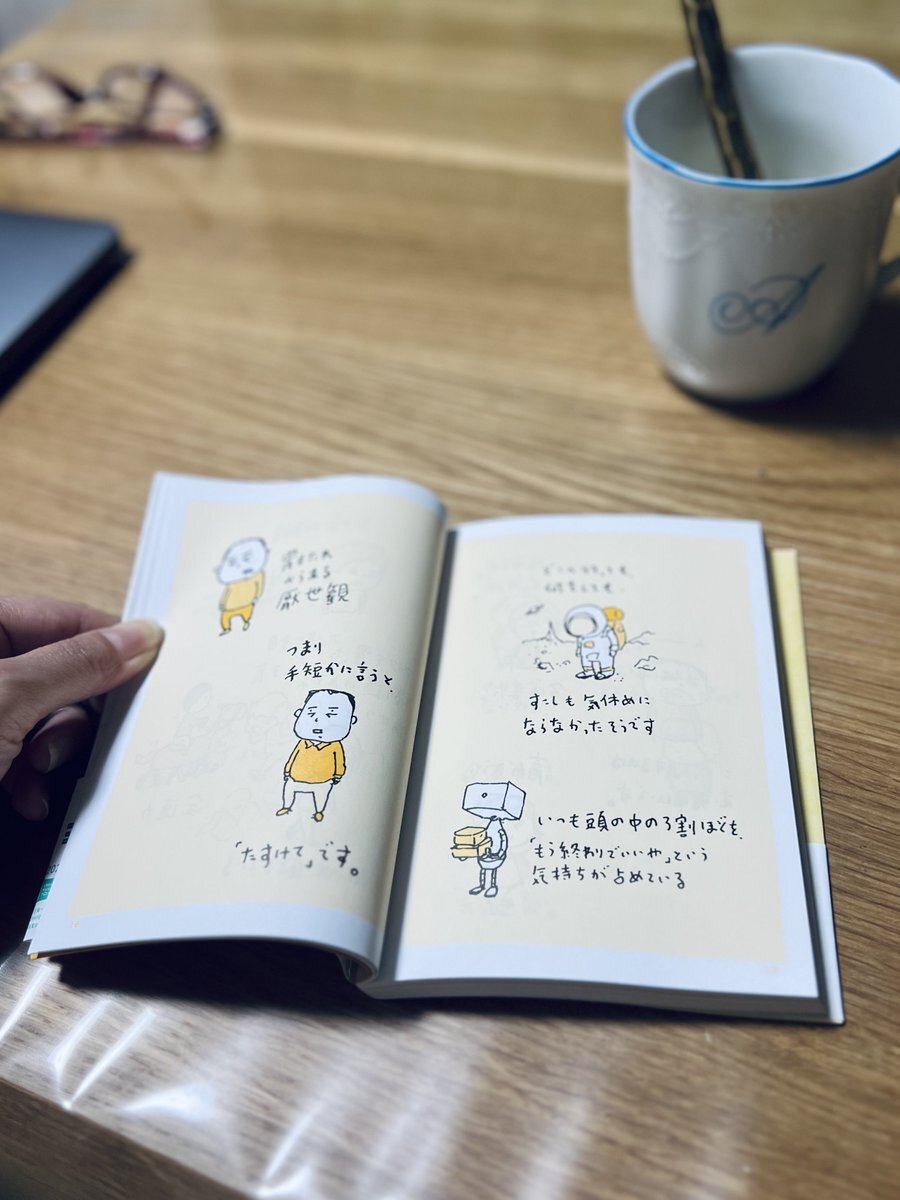 から来る
厭世観
つまり
手短かに言うと、
「たすけて」です。
すこしも気休めに
ならなかったそうです
いつも頭の中の3割ほどを、
「もう終わりでいいや」という
気持ちが占めている